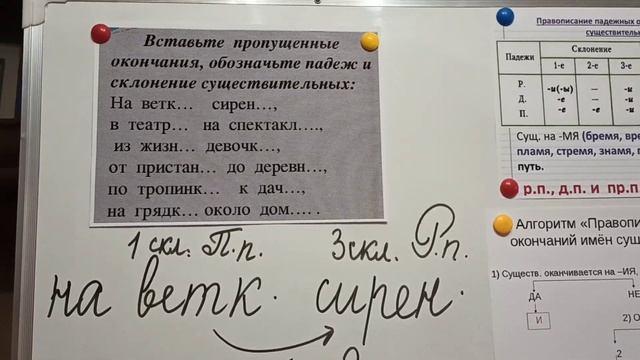 Вставьте пропущенные
окончания, обозначьте падеж и
склонение существительных:
На ветк… сирен…,
в театр… на спектакл….,
из жизн… девочк…,
от пристан… до деревн…,
по тропинк… к дач…,
на грядк… около дом…. .
1 скл. П.п. 3 скл. Р.п.
на ветк. сирен.
Правописание падежных о
существительн
Падежи Склонение
1-е 2-е 3-е
Р. -и(-ы) — -и
Д. -е — -и
П. -е -е -и
Сущ. на -МЯ (бремя, вре
пламя, стремя, знамя, 
путь.
р.п., д.п. и пр.п
Алгоритм «Правопи
окончаний имён сущ
1) Существ. оканчивается на –ИЯ,
ДА НЕ
И 2) О
,2